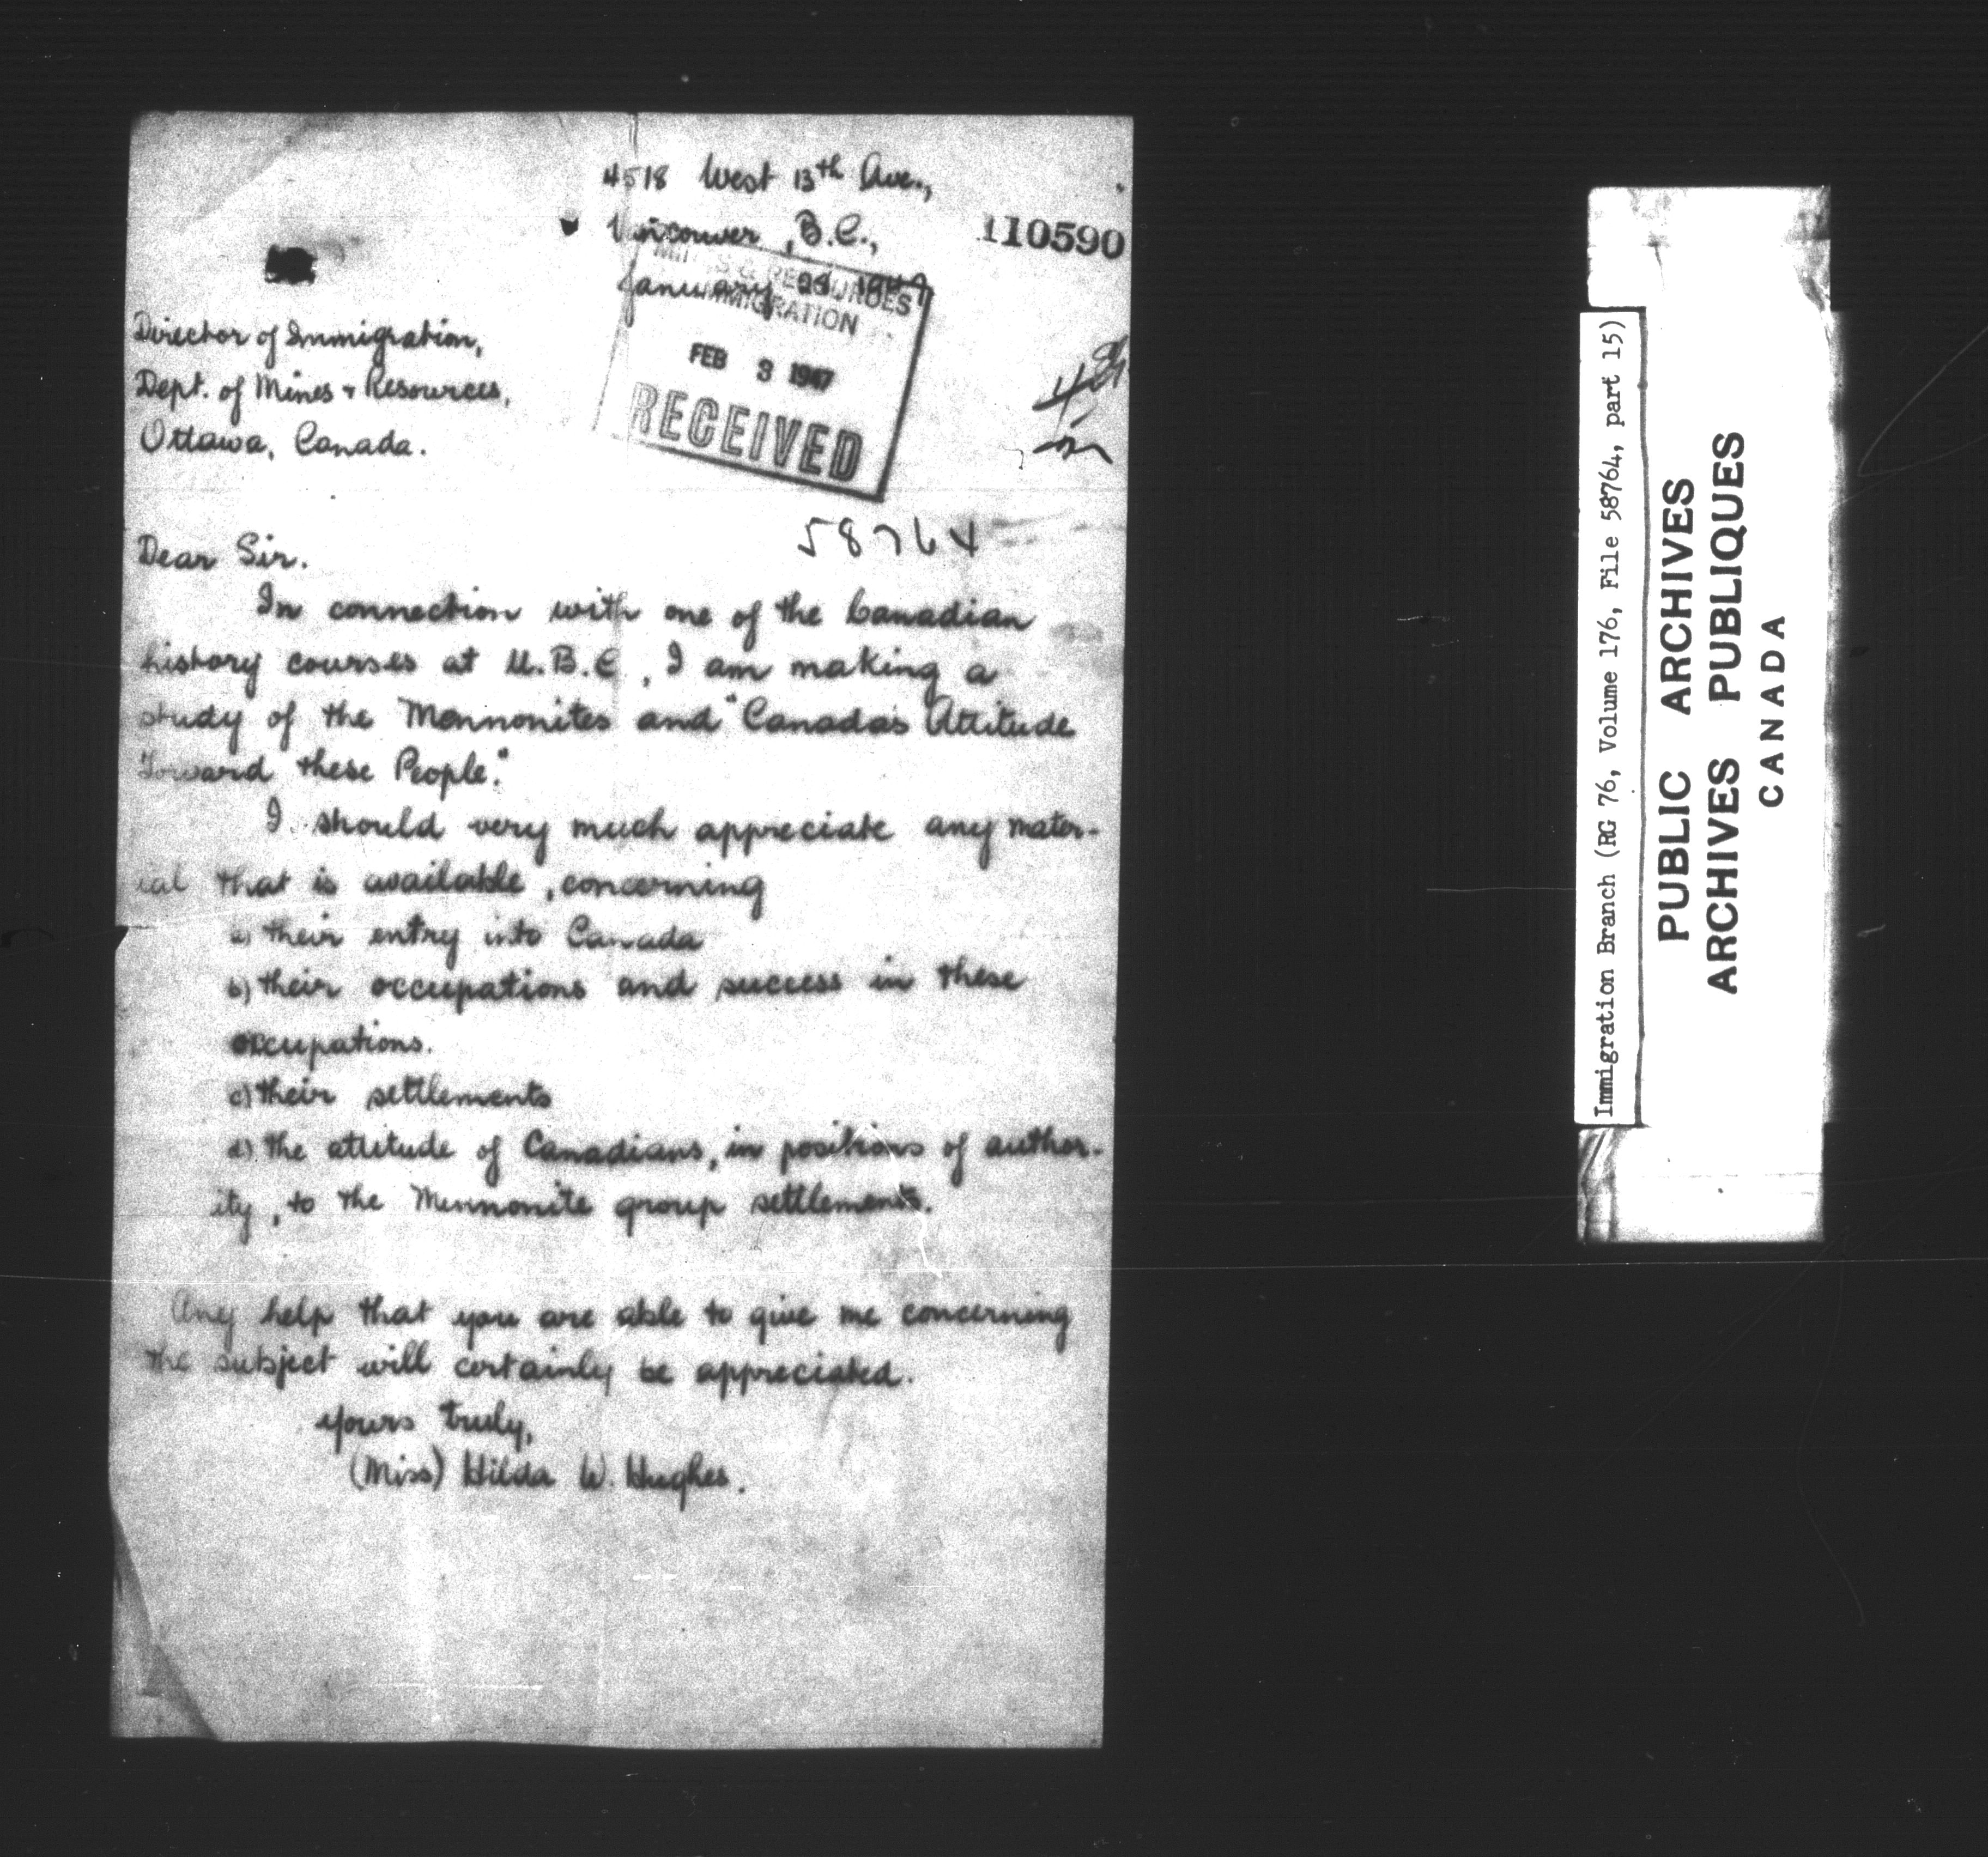 4518 West 13th Ave.,
Vancouver, B.C.,
110590
January 29, 1947
MINES & RESOURCES
IMMIGRATION
FEB 3 1947
RECEIVED
Director of Immigration,
Dept. of Mines & Resources,
Ottawa, Canada.
58764
Dear Sir.
In connection with one of the Canadian
history courses at U.B.C, I am making a
study of the Mennonites and "Canada's Attitude
Toward these People."
I should very much appreciate any mater-
ial that is available, concerning
a) their entry into Canada
b) their occupations and success in these
occupations.
c) their settlements
d) the attitude of Canadians, in positions of author-
ity, to the Mennonite group settlements.
Any help that you are able to give me concerning
the subject will certainly be appreciated.
yours truly,
(Miss) Hilda W. Hughes.
Immigration Branch (RG 76, Volume 176, File 58764, part 15)
PUBLIC ARCHIVES
ARCHIVES PUBLIQUES
CANADA